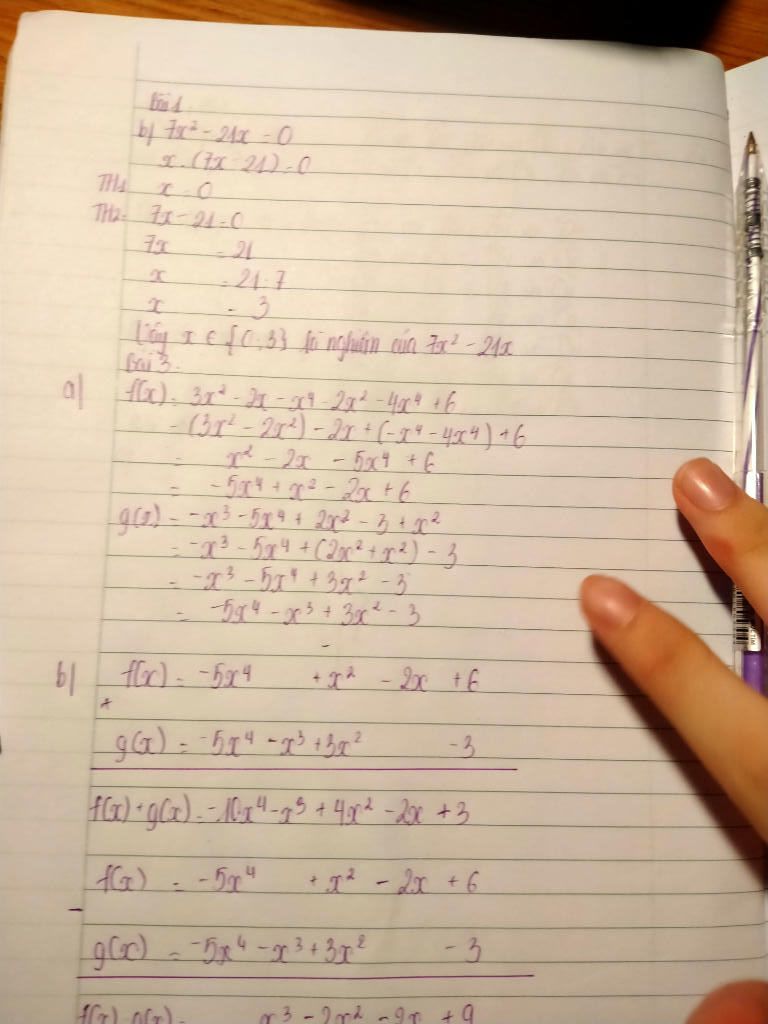 Bài 1
b) 7x² - 21x = 0
x.(7x-21)=0
TH1 x = 0
TH2: 7x - 21 = 0
7x = 21
x = 21:7
x = 3
Vậy x ∈ {0;3} là nghiệm của 7x² - 21x
Bài 3.
a) f(x) = 3x² - 2x - x⁴ - 2x² - 4x⁴ + 6
= (3x² - 2x²) - 2x + (-x⁴ - 4x⁴) + 6
= x² - 2x - 5x⁴ + 6
= -5x⁴ + x² - 2x + 6
g(x) = -x³ - 5x⁴ + 2x² - 3 + x²
= -x³ - 5x⁴ + (2x² + x²) - 3
= -x³ - 5x⁴ + 3x² - 3
= -5x⁴ - x³ + 3x² - 3
b) f(x) = -5x⁴ + x² - 2x + 6
+
g(x) = -5x⁴ - x³ + 3x² - 3
f(x) + g(x) = -10x⁴ - x³ + 4x² - 2x + 3
f(x) = -5x⁴ + x² - 2x + 6
-
g(x) = -5x⁴ - x³ + 3x² - 3
f(x) - g(x) = x³ - 2x² - 2x + 9